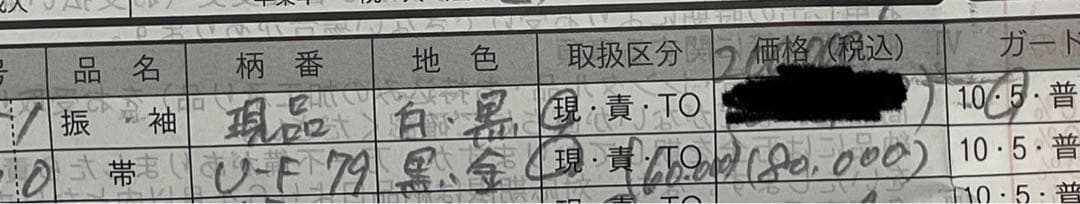 品 名 柄 番 地 色 取扱区分 価格(税込) ガード
1 振・袖 現品 白・黒 現・責・TO 10・5・普
0 帯 U-F 79 黒・金 現・責・TO (60.000) (80.000) 10・5・普
10・5・普